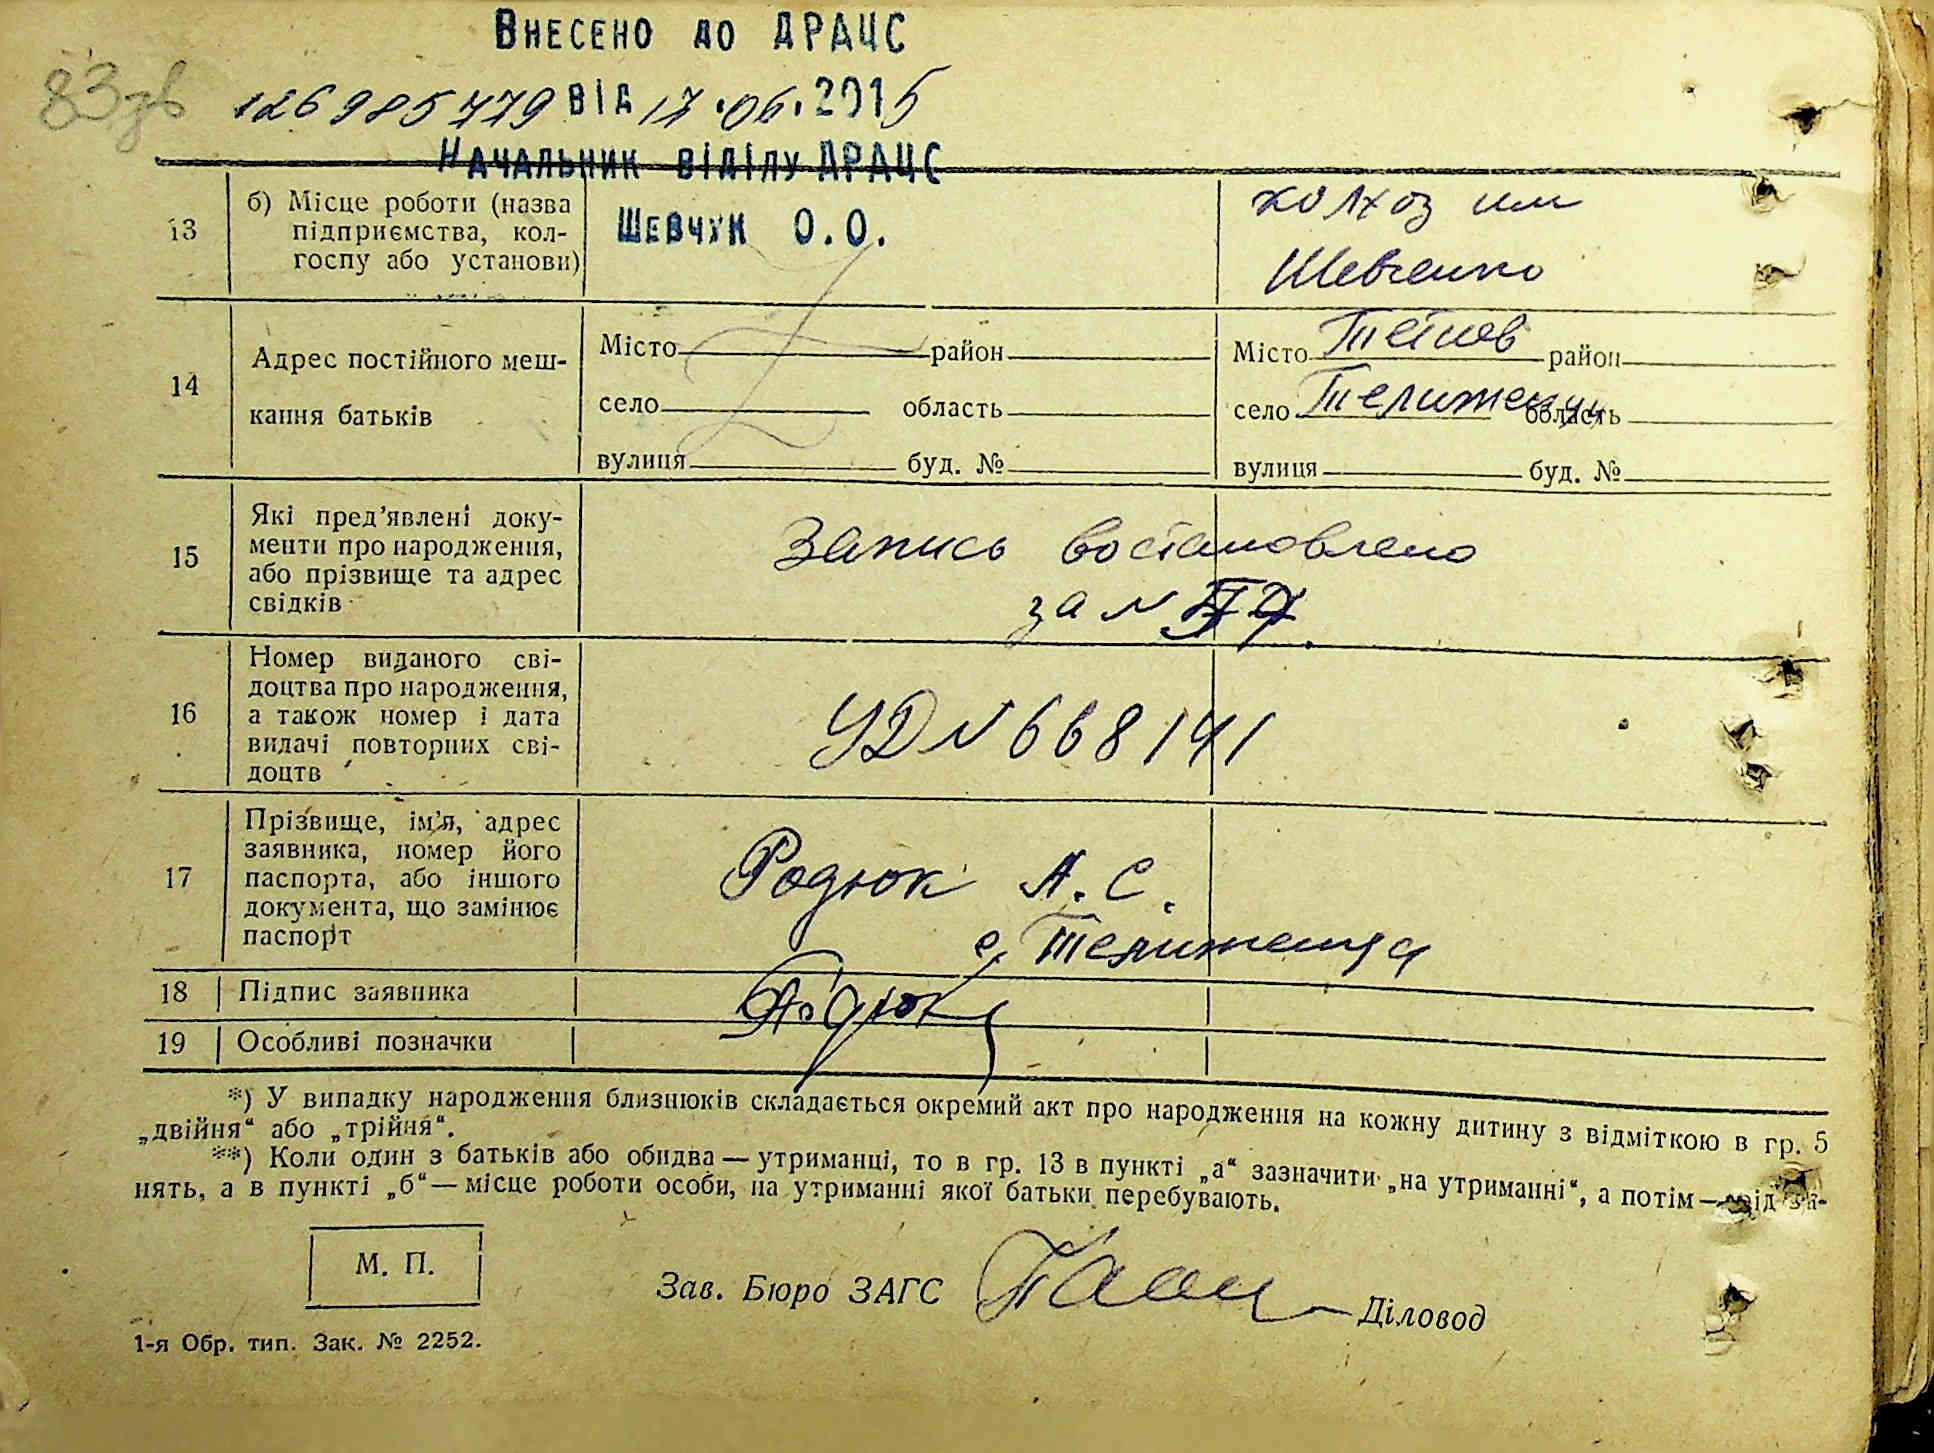 Внесено до ДРАЦС
83зв
126985779 від 17.06.2015
Начальник відділу ДРАЦС
Шевчук О.О.
13 б) Місце роботи (назва
підприємства, кол-
госпу або установи)
колхоз им
Шевченко
14 Адрес постійного меш-
кання батьків
Місто район
село область
вулиця буд. №
Місто Тетиев район
село Телиженци область
вулиця буд. №
15 Які пред’явлені доку-
менти про народження,
або прізвище та адрес
свідків
Запись востановлено
за №
16 Номер виданого сві-
доцтва про народження,
а також номер і дата
видачі повторних сві-
доцтв
УД № 668141
17 Прізвище, ім’я, адрес
заявника, номер його
паспорта, або іншого
документа, що замінює
паспорт
Родюк А. С.
с. Телиженци
18 Підпис заявника
19 Особливі позначки
*) У випадку народження близнюків складається окремий акт про народження на кожну дитину з відміткою в гр. 5
„двійня“ або „трійня“.
**) Коли один з батьків або обидва — утриманці, то в гр. 13 в пункті „а“ зазначити „на утриманні“, а потім — від за-
нять, а в пункті „б“ — місце роботи особи, на утриманні якої батьки перебувають.
М. П.
Зав. Бюро ЗАГС Діловод
1-я Обр. тип. Зак. № 2252.